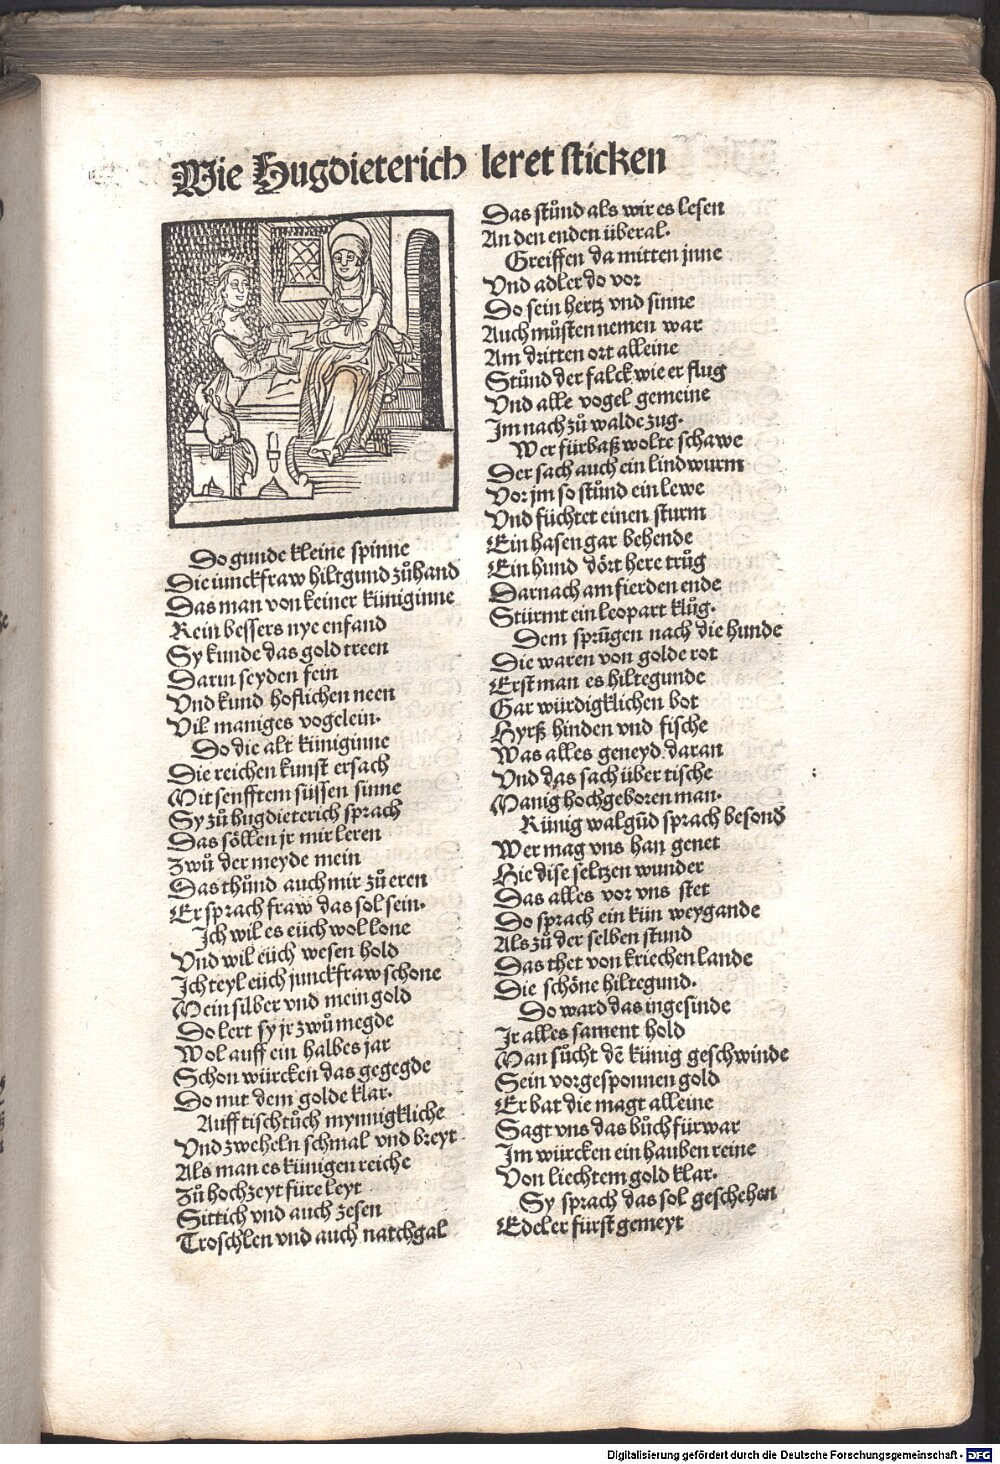 Wie Hugdieterich leret sticken
Do gunde kleine spinne
Die iunckfraw hiltgund zůhand
Das man von keiner küniginne
Kein bessers nye enfand
Sy kunde das gold treen
Darin seyden fein
Vnd kund hoflichen neen
Vil maniges vogelein.
Do die alt küniginne
Die reichen kunst ersach
Mit senfftem süssen sinne
Sy zů hugdieterich sprach
Das söllen jr mir leren
Zwů der meyde mein
Das thůnd auch mir zů eren
Er sprach fraw das sol sein.
Ich wil es eüch wol lone
Vnd wil eüch wesen hold
Ich teyl eüch junckfraw schone
Mein silber vnd mein gold
Do lert sy jr zwů megde
Wol auff ein halbes jar
Schon würcken das gegegde
Do mit dem golde klar.
Auff tischtůch mynnigkliche
Vnd zweheln schmal vnd breyt
Als man es künigen reiche
Zů hochzeyt füre leyt
Sittich vnd auch zesen
Troschlen vnd auch natchgal
Das stůnd als wir es lesen
An den enden überal.
Greiffen da mitten jnne
Vnd adler do vor
Do sein hertz vnd sinne
Auch můsten nemen war
Am dritten ort alleine
Stůnd der falck wie er flug
Vnd alle vogel gemeine
Im nach zů walde zug.
Wer fürbaß wolte schawe
Der sach auch ein lindwurm
Vor jm so stůnd ein lewe
Vnd füchtet einen sturm
Ein hasen gar behende
Ein hund dört here trůg
Darnach am fierden ende
Stürmt ein leopart klůg.
Dem sprůgen nach die hunde
Die waren von golde rot
Erst man es hiltegunde
Gar würdigklichen bot
Hyrß hinden vnd fische
Was alles geneyd daran
Vnd das sach über tische
Manig hochgeboren man.
Künig walgūd sprach besond
Wer mag vns han genet
Hie dise seltzen wunder
Das alles vor vns stet
Do sprach ein kün weygande
Als zů der selben stund
Das thet von kriechen lande
Die schöne hiltegund.
Do ward das ingesinde
Ir alles sament hold
Man sůcht dē künig geschwinde
Sein vorgesponnen gold
Er bat die magt alleine
Sagt vns das bůch fürwar
Im würcken ein hauben reine
Von liechtem gold klar.
Sy sprach das sol geschehen
Edeler fürst gemeyt
Digitalisierung gefördert durch die Deutsche Forschungsgemeinschaft - DFG